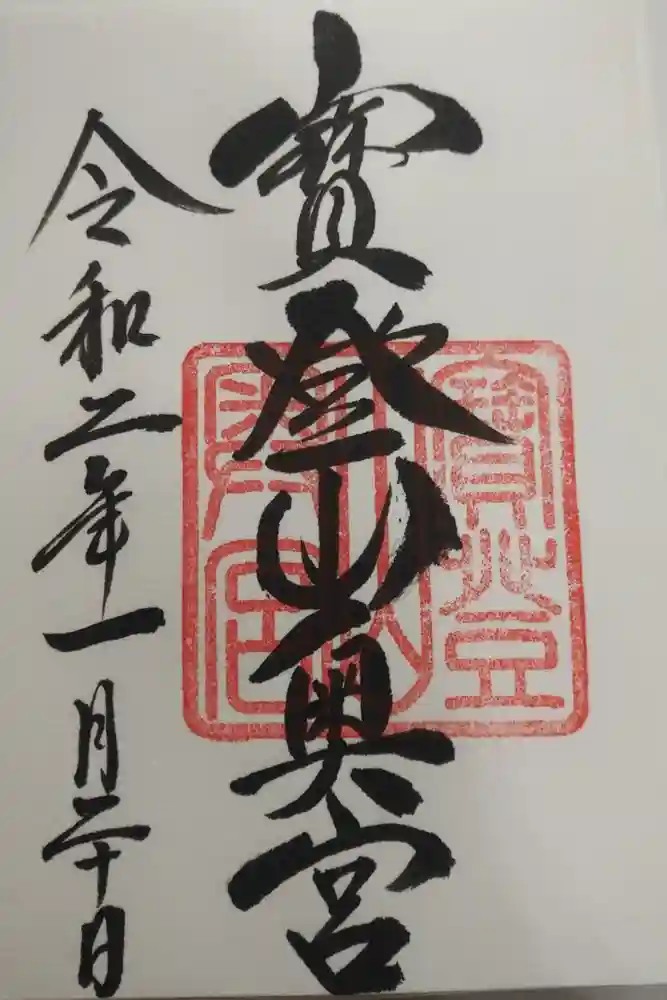 寶登山奥宮
令和二年一月二十日
寶登山奥宮